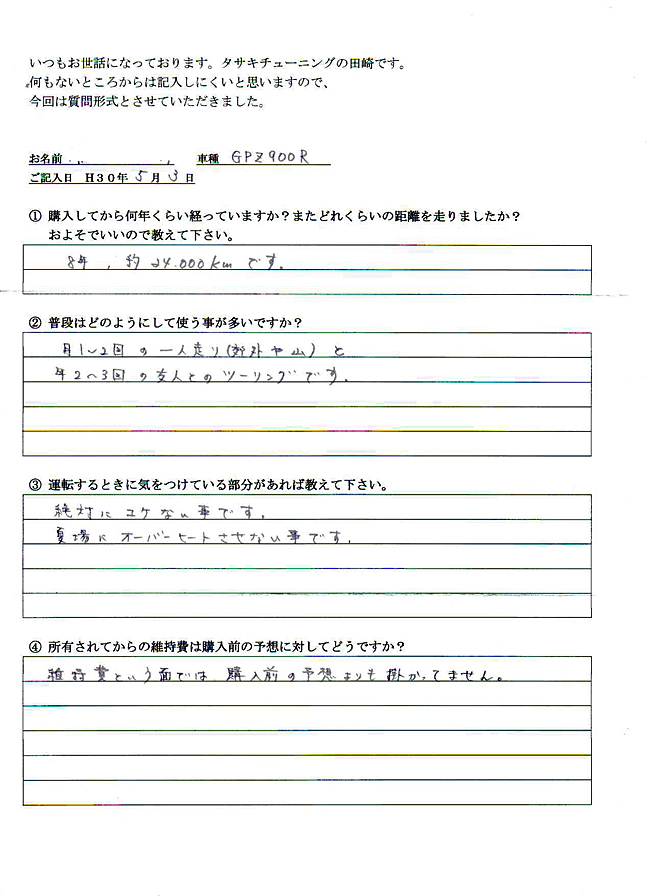 いつもお世話になっております。タサキチューニングの田崎です。
何もないところからは記入しにくいと思いますので、
今回は質問形式とさせていただきました。
お名前 車種 GPZ900R
ご記入日 H30年 5月 3日
① 購入してから何年くらい経っていますか？またどれくらいの距離を走りましたか？
およそでいいので教えて下さい。
8年，約24.000kmです。
② 普段はどのようにして使う事が多いですか？
月1～2回の一人走り(郊外や山)と
年2～3回の友人とのツーリングです。
③ 運転するときに気をつけている部分があれば教えて下さい。
絶対にコケない事です。
夏場にオーバーヒートさせない事です。
④ 所有されてからの維持費は購入前の予想に対してどうですか？
維持費という面では、購入前の予想よりも掛かってません。